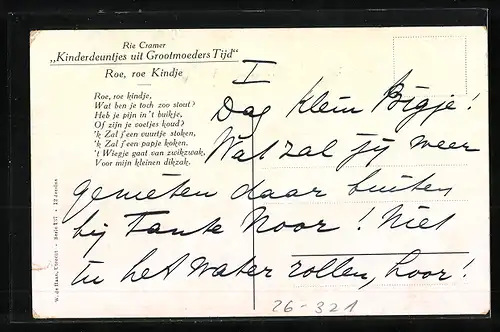 Rie Cramer
„Kinderdeuntjes uit Grootmoeders Tijd“
Roe, roe Kindje
Roe, roe kindje,
Wat ben je toch zoo stout?
Heb je pijn in 't buikje,
Of zijn je voetjes koud?
'k Zal j'een vuurtje stoken,
'k Zal j'een papje koken.
't Wiegje gaat van zwikzwak,
Voor mijn kleinen dikzak.
W. de Haan, Utrecht - Serie
I
Dag klein Bigje!
Wat zal jij weer
genieten daar buiten
bij Tante Noor! Niet
in het water rollen, hoor!
26-321